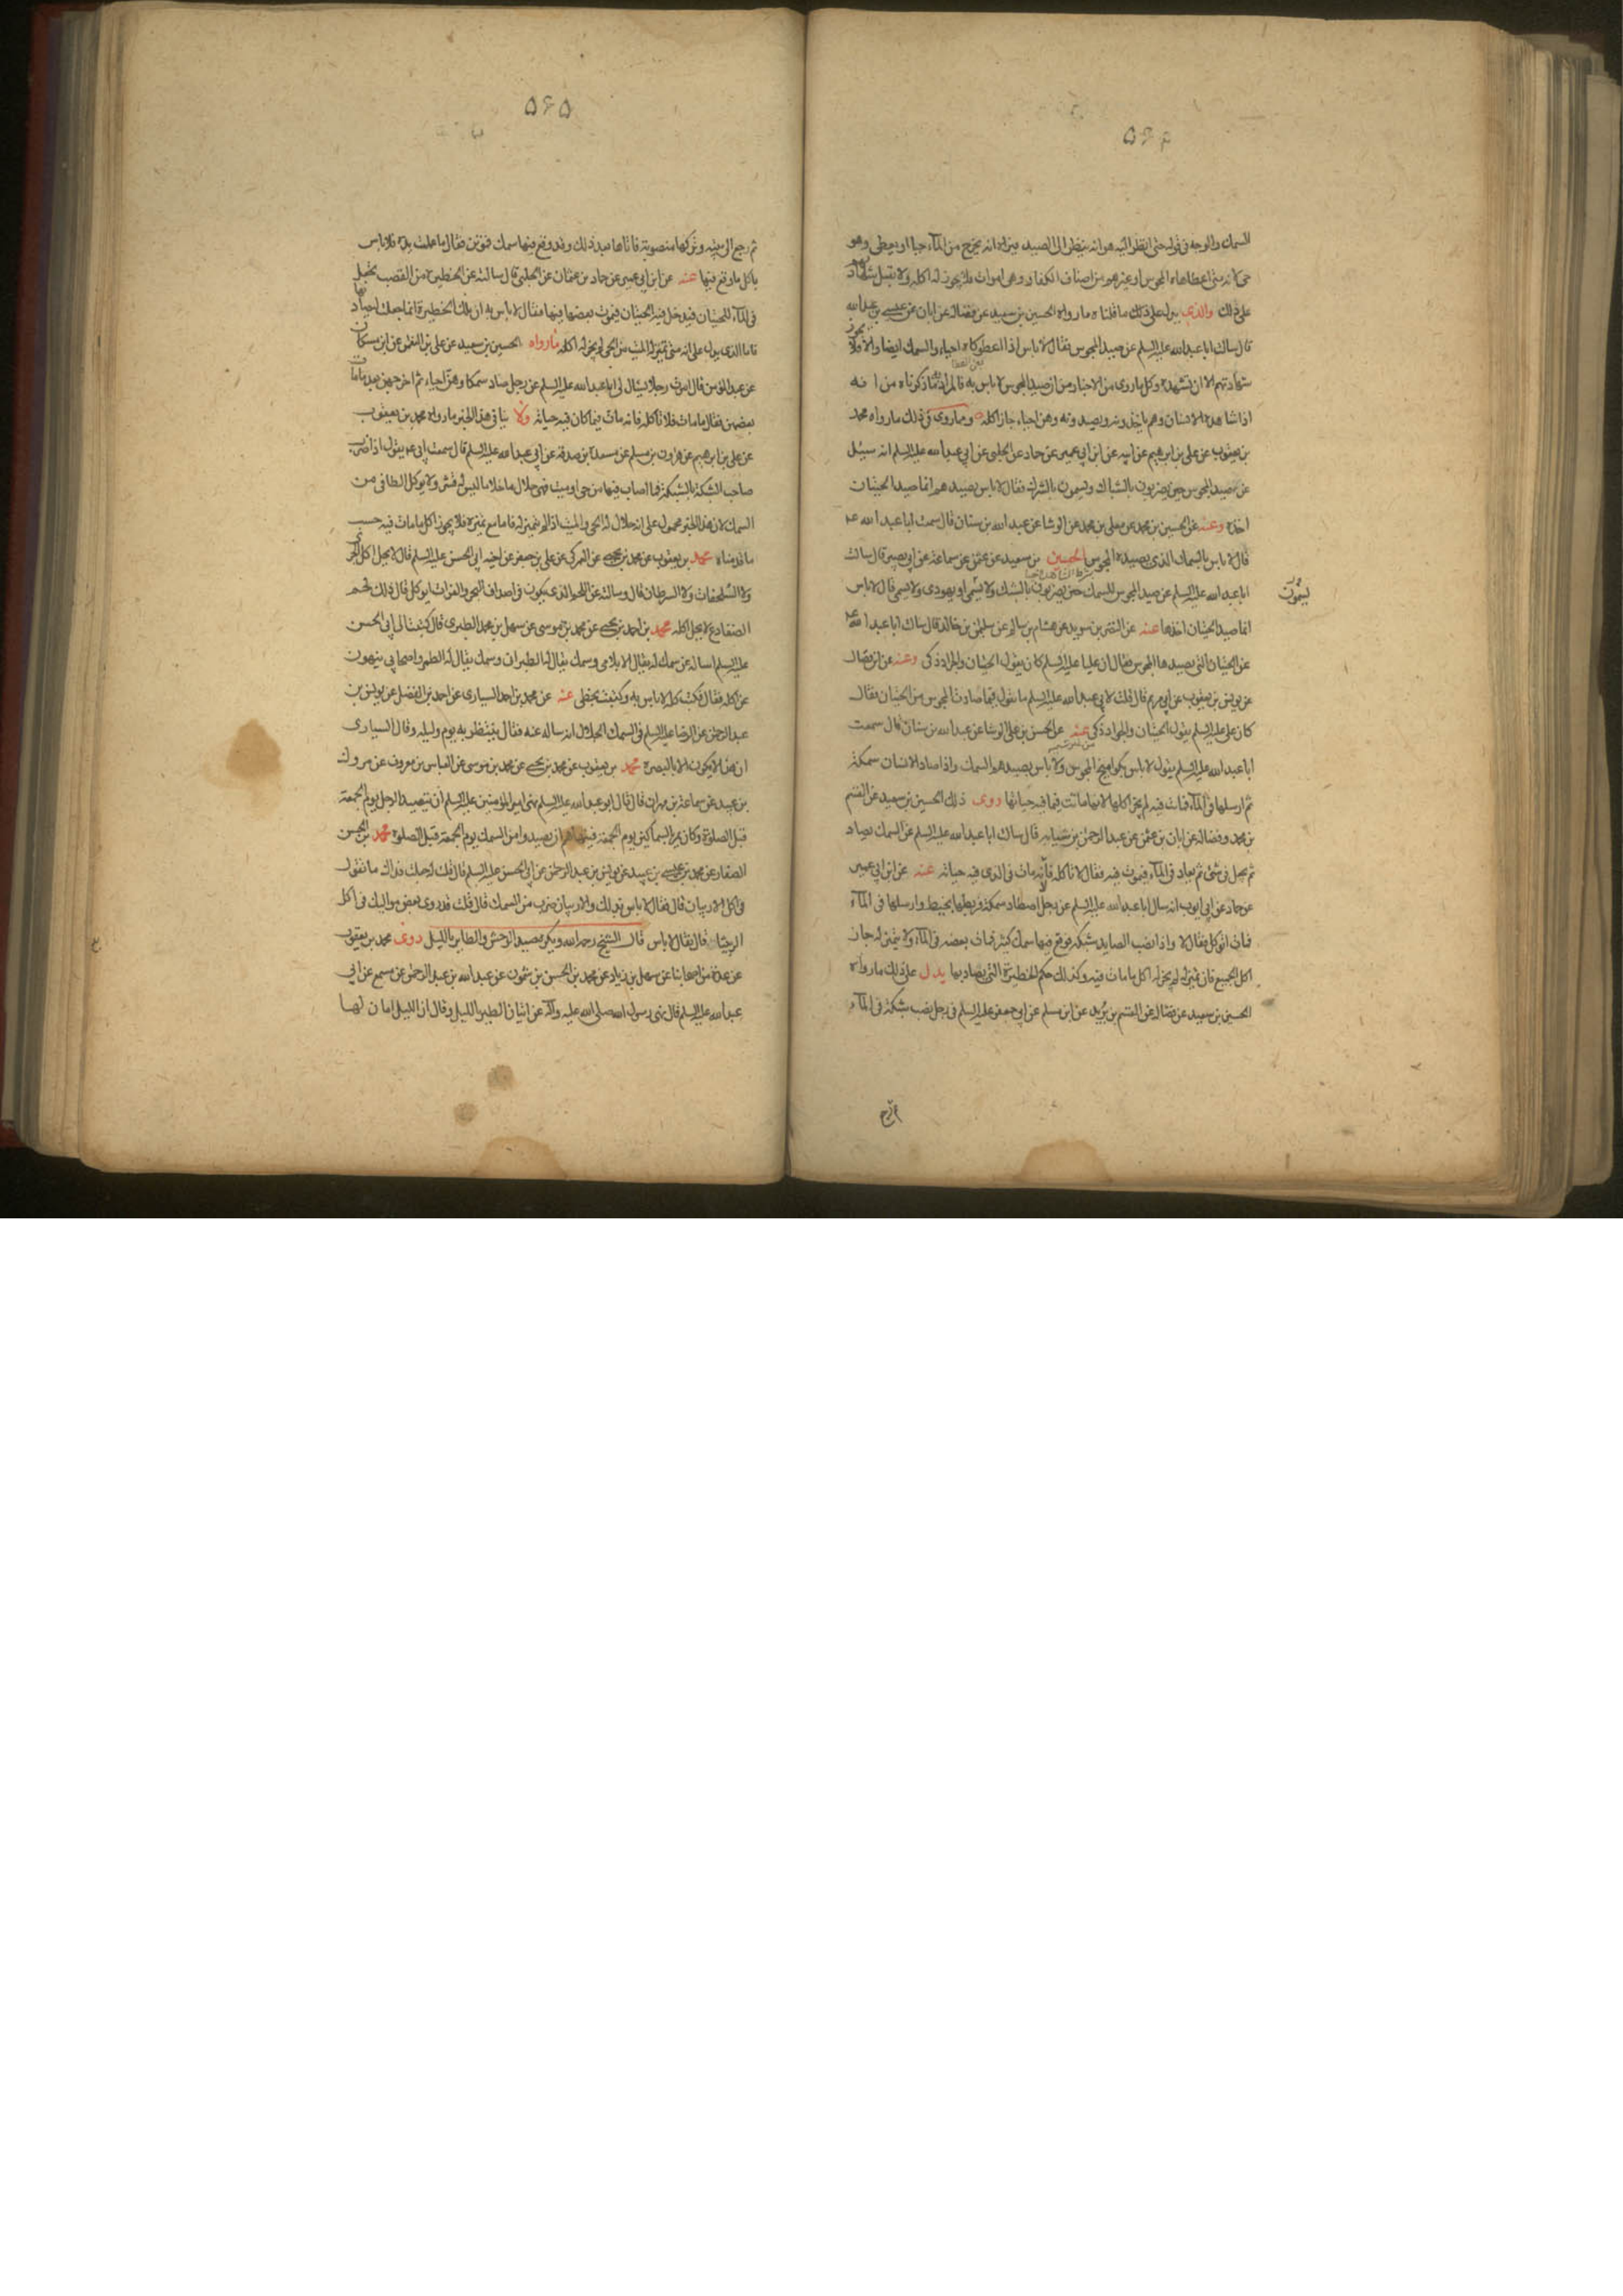 ۵۶۴
السمك والوجه في قوله حتى انظر اليه هو انه ينظر الى الصيد فيراه انه يخرج من المآء حيا او يعطى وهو
حي لانه متى اعطاه المجوس او غيرهم من اصناف الكفار وهى اموات فلا يجوز له اكله ولا يقبل شهادتهم
على ذلك والذي يدل على ذلك ما قلناه ما رواه الحسين بن سعيد عن فضالة عن ابان عن عيسى بن عبد الله
قال سالت ابا عبد الله عليه السلم عن صيد المجوس فقال لا باس اذا اعطوكاه احياء والسمك ايضا والا فلا يجوز
شهادتهم الا ان تشهده وكل ما روى من الاخبار من ان صيد المجوس لا باس به فالمراد به ما ذكرناه من انه
اذا شاهده الانسان وهم ياخذونه ويصيدونه وهن احياء جاز اكله ومما روى في ذلك ما رواه محمد
بن يعقوب عن على بن ابرهيم عن ابيه عن ابن ابي عمير عن حماد عن الحلبى عن ابي عبد الله عليه السلم انه سئل
عن صيد المجوس حين يضربون بالشباك ويسمون بالشرك فقال لا باس بصيدهم انما صيد الحيتان
اخذه وعنه عن الحسين بن محمد عن معلى بن محمد عن الوشا عن عبد الله بن سنان قال سمعت ابا عبد الله ع
قال لا باس بالسمك الذى يصيده المجوس الحسين بن سعيد عن عثمن عن سماعة عن ابي بصير قال سالت
ابا عبد الله عليه السلم عن صيد المجوس للسمك حين يضربون بالشبك ولا يسمى او يهودى ولا يسمى قال لا باس
يسمون
انما صيد الحيتان اخذها عنه عن النضر بن سويد عن هشام بن سالم عن سليمن بن خالد قال سالت ابا عبد الله ع
عن الحيتان التى يصيدها المجوس فقال ان عليا عليه السلم كان يقول الحيتان والجراد ذكى وعنه عن ابن فضال
عن يونس بن يعقوب عن ابي مريم قال قلت لابي عبد الله عليه السلم ما تقول فيما صادت المجوس من الحيتان فقال
كان على عليه السلم يقول الحيتان والجراد ذكى عنه عن الحسن بن على الوشا عن عبد الله بن سنان قال سمعت
ابا عبد الله عليه السلم يقول لا باس بكواميخ المجوس ولا باس بصيدهم السمك واذا صاد الانسان سمكة
ثم ارسلها في المآء فماتت فيه لم يجز اكلها لانها ماتت فيما فيه حياتها روى ذلك الحسين بن سعيد عن القسم
بن محمد وفضالة عن ابان بن عثمن عن عبد الرحمن بن سيابة قال سالت ابا عبد الله عليه السلم عن السمك يصاد
ثم يجعل في شئ ثم يعاد في المآء فيموت فيه فقال لا تاكله لانه مات في الذى فيه حياته عنه عن ابن ابي عمير
عن حماد عن ابي ايوب انه سال ابا عبد الله عليه السلم عن رجل اصطاد سمكة فربطها بخيط وارسلها في المآء
فماتت اتوكل فقال لا واذا نصب الصايد شبكة فوقع فيها سمك كثير فمات بعضه في المآء ولا يتميز له جاز
اكل الجميع فان تميز له لم يجز له اكل ما مات فيه وكذلك حكم الحظيرة التى يصاد بها يدل على ذلك ما رواه
الحسين بن سعيد عن فضالة عن القسم بن بريد عن ابن مسلم عن ابي جعفر عليه السلم في رجل نصب شبكة في المآء
ثم رجع
۵۶۵
ثم رجع الى بيته وتركها منصوبة فاتاها بعد ذلك وقد وقع فيها سمك فموتن فقال ما عملت يده فلا باس
باكل ما وقع فيها عنه عن ابن ابي عمير عن حماد بن عثمان عن الحلبى قال سالته عن الحظيرة من القصب تجعل
في المآء للحيتان فيدخل فيها الحيتان فيموت بعضها فيها فقال لا باس به ان تلك الحظيرة انما جعلت ليصاد بها
فاما الذى يدل على انه متى تميز له الميت من الحى لم يجز له اكله ما رواه الحسين بن سعيد عن على بن النعمن عن ابن مسكان
عن عبد المؤمن قال امرت رجلا يسال لى ابا عبد الله عليه السلم عن رجل صاد سمكا وهن احياء ثم اخرجهن بعد ما مات
بعضهن فقال ما مات فلا تاكله فانه مات فيما كان فيه حياته ولا ينافي هذا الخبر ما رواه محمد بن يعقوب
عن على بن ابرهيم عن هرون بن مسلم عن مسعدة بن صدقة عن ابي عبد الله عليه السلم قال سمعت ابي ع يقول اذا ضرب
صاحب الشبكة بالشبكة فما اصاب فيها من حى او ميت فهو حلال ما خلا ما ليس له قشر ولا يوكل الطافى من
السمك لان هذا الخبر محمول على انه حلال له الحى والميت اذا لم يتميز له فاما مع تميزه فلا يجوز اكل ما مات فيه حسب
ما قدمناه محمد بن يعقوب عن محمد بن يحيى عن العمركى عن على بن جعفر عن اخيه ابي الحسن عليه السلم قال لا يحل اكل الجرى
ولا السلحفات ولا السرطان قال وسالته عن اللحم الذى يكون في اصداف البحر والفرات ايوكل قال ذلك لحم
الضفادع لا يحل اكله محمد بن احمد بن يحيى عن محمد بن موسى عن سهل بن محمد الطبرى قال كتبت الى ابي الحسن
عليه السلم اساله عن سمك له يقال الابلامى وسمك يقال له الطبران وسمك يقال له الطمر واصحابي ينهون
عن اكله فقال فكتب كله لا باس به وكتبت بخطى عنه عن محمد بن احمد السيارى عن احمد بن الفضل عن يونس بن
عبد الرحمن عن الرضا عليه السلم في السمك الجلال انه ساله عنه فقال ينتظر به يوم وليلة وقال السيارى
ان هذا لا يكون الا بالبصرة محمد بن يعقوب عن محمد بن يحيى عن محمد بن موسى عن العباس بن معروف عن مروك
بن عبيد عن سماعة بن مهران قال قال ابو عبد الله عليه السلم نهى امير المؤمنين عليه السلم ان يتصيد الرجل يوم الجمعة
قبل الصلوة وكان يمر بالسماكين يوم الجمعة فينهاهم ان يصيدوا من السمك يوم الجمعة قبل الصلوة محمد بن الحسن
الصفار عن محمد بن عيسى بن عبيد عن يونس بن عبد الرحمن عن ابي الحسن عليه السلم قال قلت له جعلت فداك ما تقول
في اكل الاربيان قال فقال لا باس بذلك والاربيان ضرب من السمك قال قلت قد روى بعض مواليك في اكل
الربيثا قال فقال لا باس قال الشيخ رحمه الله ويكره صيد الوحش والطاير بالليل روى محمد بن يعقوب
عن عدة من اصحابنا عن سهل بن زياد عن محمد بن الحسن بن شمون عن عبد الله بن عبد الرحمن عن مسمع عن ابي
عبد الله عليه السلم قال نهى رسول الله صلى الله عليه وآله عن اتيان الطير بالليل وقال ان الليل امان لها